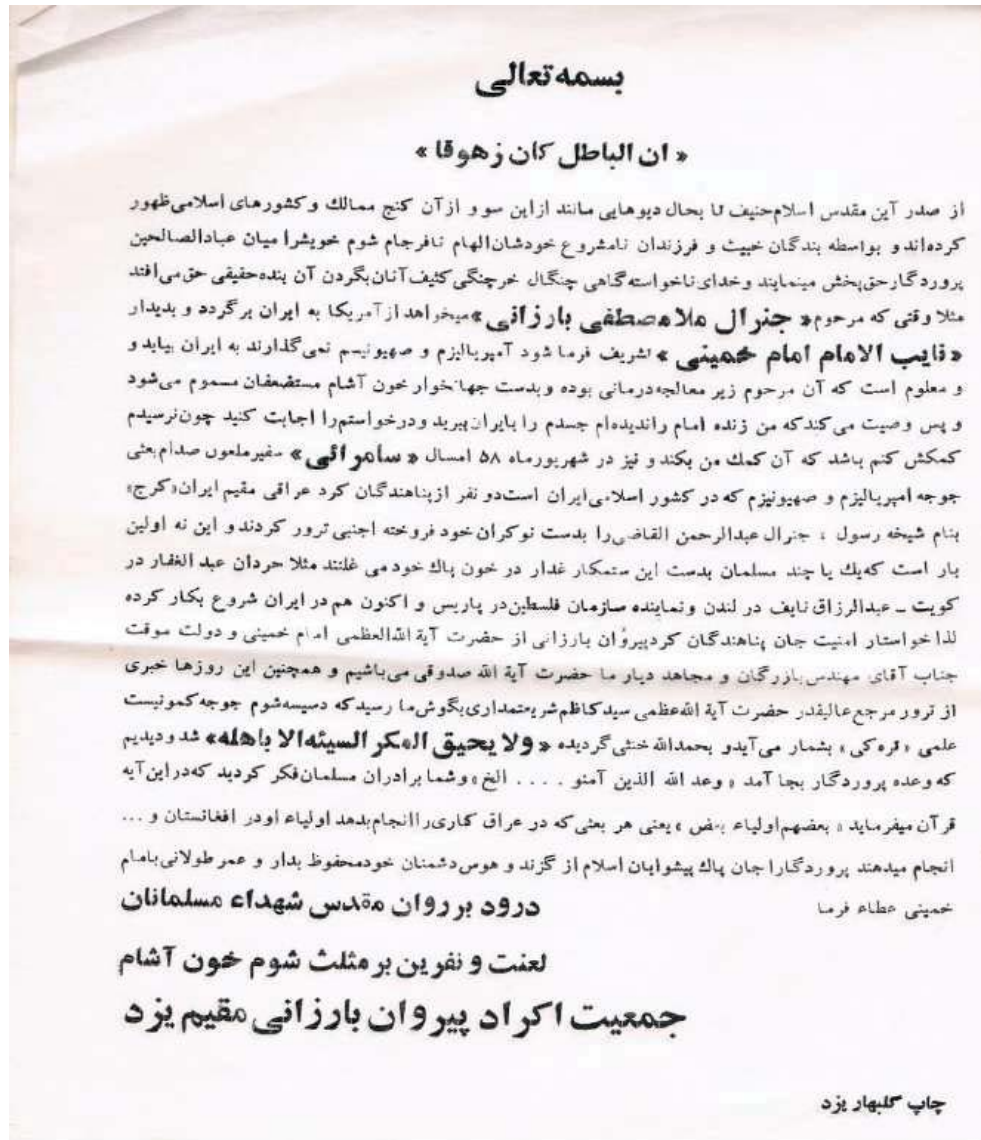 بسمه تعالی
« ان الباطل كان زهوقا »
از صدر آین مقدس اسلام حنیف تا بحال دیوهایی مانند از این سو و از آن کنج ممالك و کشورهای اسلامی ظهور
کرده‌اند و بواسطه بندگان خبیث و فرزندان نامشروع خودشان الهام نافرجام شوم خویشرا میان عبادالصالحین
پروردگار حق پخش مینمایند و خدای ناخواسته گاهی چنگال خرچنگی کثیف آنان بگردن آن بنده حقیقی حق می‌افتد
مثلا وقتی که مرحوم « جنرال ملا مصطفی بارزانی » میخراهد از آمریکا به ایران برگردد و بدیدار
« نایب الامام امام خمینی » تشریف فرما شود آمپریالیزم و صهیونیسم نمی گذارند به ایران بیاید و
و معلوم است که آن مرحوم زیر معالجه درمانی بوده و بدست جهانخوار خون آشام مستضعفان مسموم می‌شود
و پس وصیت می‌کند که من زنده امام را ندیده‌ام جسدم را بایران ببرید و درخواستم را اجابت کنید چون نرسیدم
کمکش کنم باشد که آن کمك من بکند و نیز در شهریورماه ۵۸ امسال « سامرائی » سفیر ملعون صدام بعثی
جوجه امپریالیزم و صهیونیزم که در کشور اسلامی ایران است دو نفر از پناهندگان کرد عراقی مقیم ایران «کرج»
بنام شیخه رسول ، جنرال عبدالرحمن القاضی را بدست نوکران خود فروخته اجنبی ترور کردند و این نه اولین
بار است که یك یا چند مسلمان بدست این ستمکار غدار در خون پاك خود می غلتند مثلا حردان عبد الغفار در
کویت ـ عبدالرزاق نایف در لندن و نماینده سازمان فلسطین در پاریس و اکنون هم در ایران شروع بکار کرده
لذا خواستار امنیت جان پناهندگان کرد پیروان بارزانی از حضرت آیة الله العظمی امام خمینی و دولت موقت
جناب آقای مهندس بازرگان و مجاهد دیار ما حضرت آیة الله صدوقی می‌باشیم و همچنین این روزها خبری
از ترور مرجع عالیقدر حضرت آیة الله عظمی سید کاظم شریعتمداری بگوش ما رسید که دسیسه شوم جوجه کمونیست
علمی « قره کی » بشمار می‌آید و بحمدالله خنثی گردیده « ولا یحیق المکر السیئه الا باهله » شد و دیدیم
که وعده پروردگار بجا آمد « وعد الله الذین آمنو .... الخ » و شما برادران مسلمان فکر کردید که در این آیه
قرآن میفرماید « بعضهم اولیاء بعض » یعنی هر بعثی که در عراق کاری را انجام بدهد اولیاء او در افغانستان و ...
انجام میدهند پروردگارا جان پاك پیشوایان اسلام از گزند و هوس دشمنان خود محفوظ بدار و عمر طولانی بامام
خمینی عطاء فرما
درود بر روان مقدس شهداء مسلمانان
لعنت و نفرین بر مثلث شوم خون آشام
جمعیت اکراد پیروان بارزانی مقیم یزد
چاپ گلبهار یزد